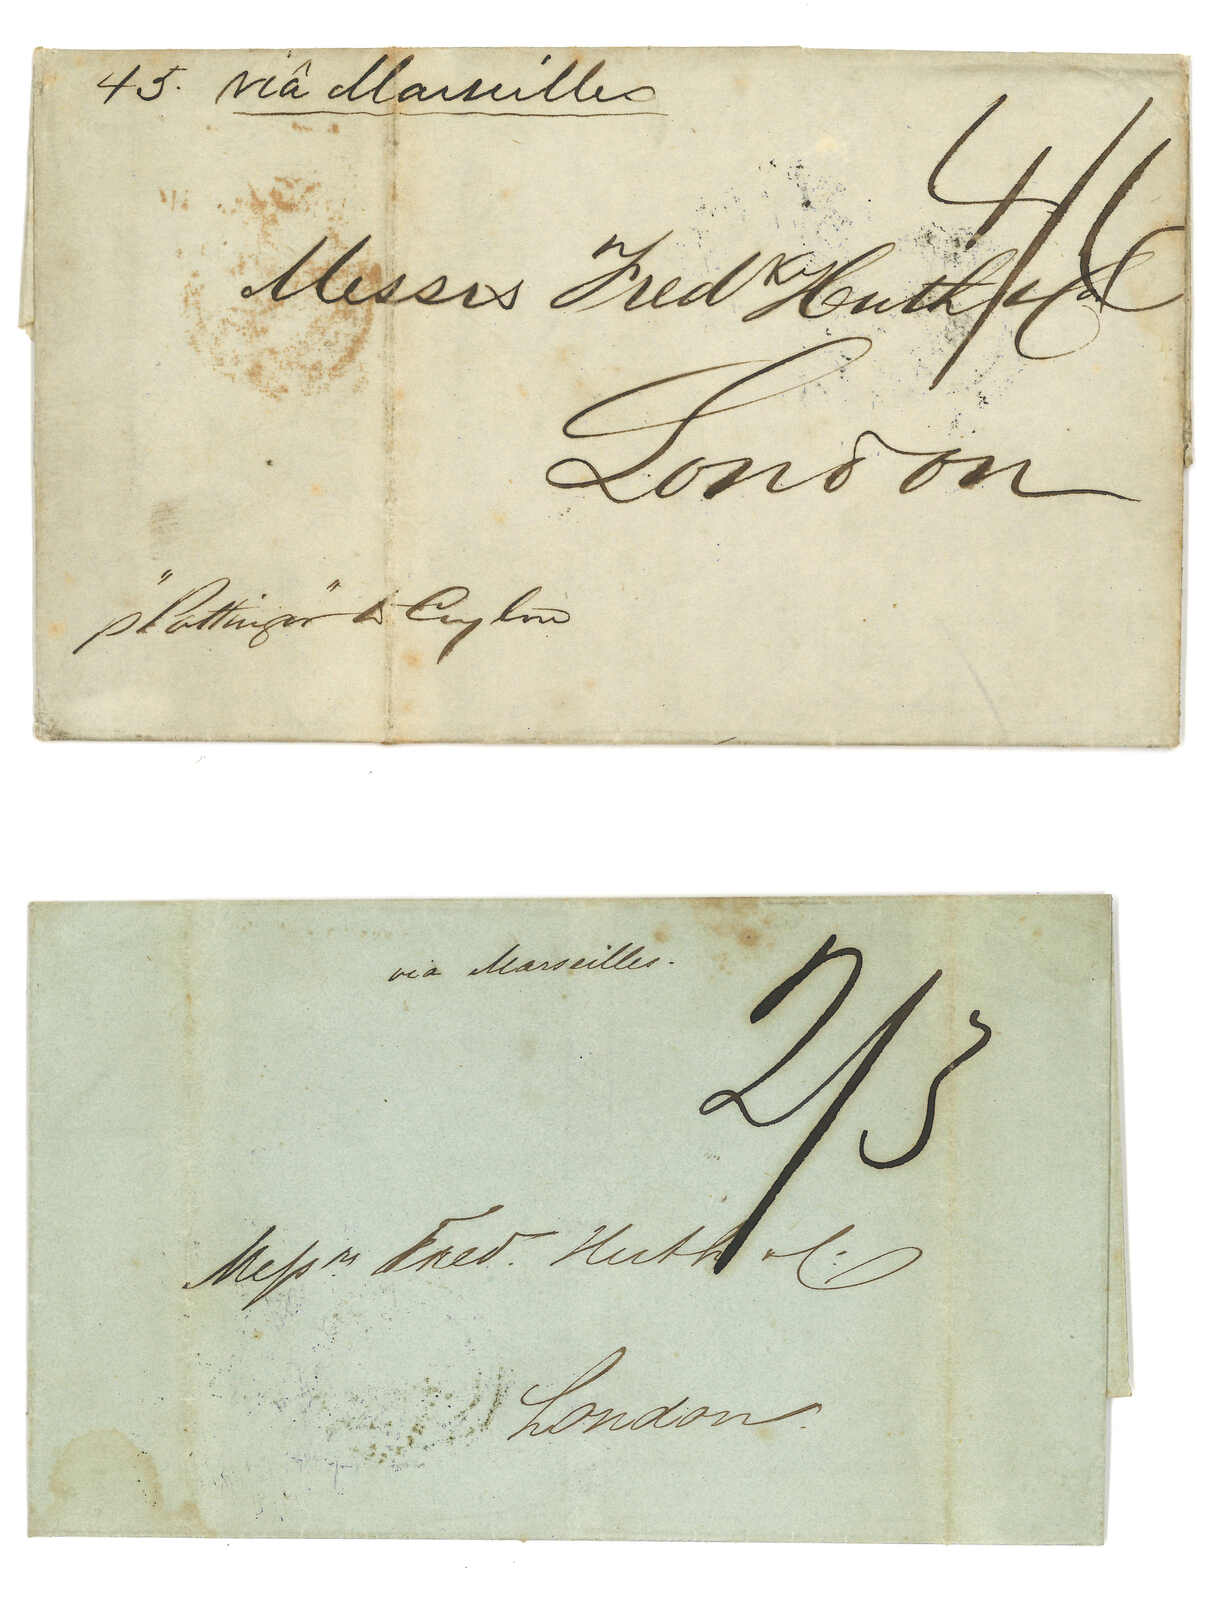 45. viâ Marseilles
4/6
Messrs Fredk Huth & Co
London
p "Pottinger" to Ceylon
via Marseilles.
2/3
Messrs Fred. Huth & C.
London.